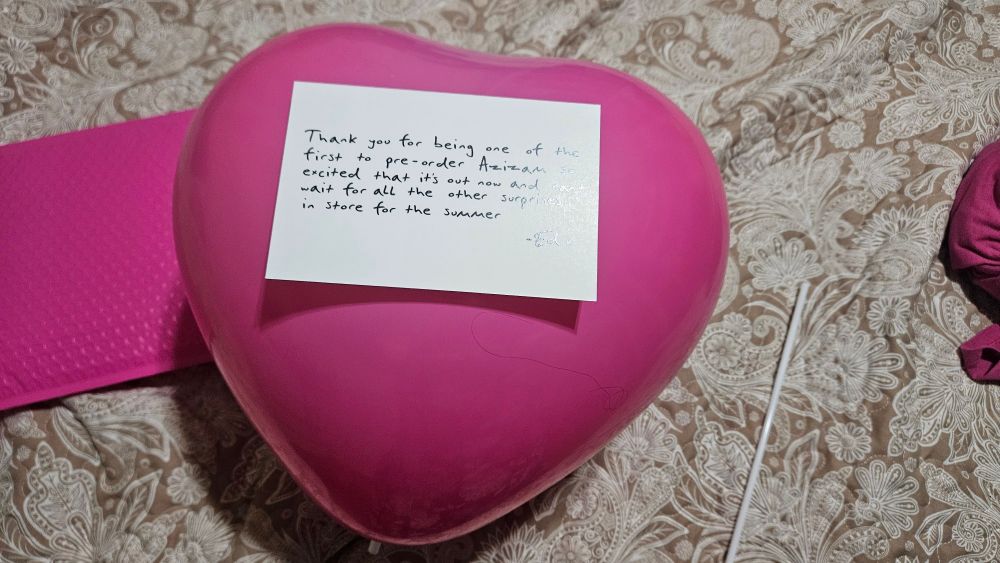 Thank you for being one of the
first to pre-order Azizam so
excited that it's out now and
wait for all the other surprises
in store for the summer
-Ed